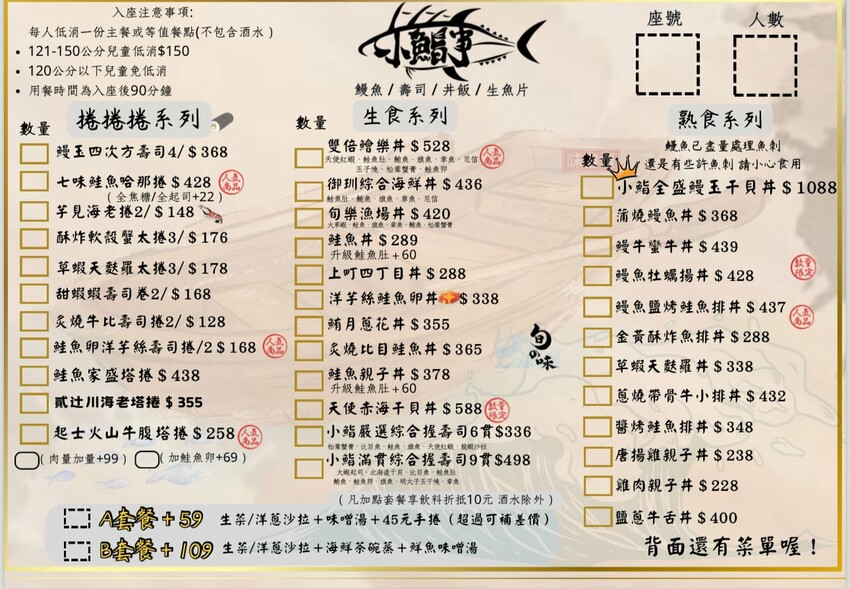 入座注意事項:
每人低消一份主餐或等值餐點(不包含酒水)
• 121-150公分兒童低消$150
• 120公分以下兒童免低消
• 用餐時間為入座後90分鐘
小鮨事
鰻魚/壽司/丼飯/生魚片
座號
人數
數量
捲捲捲系列
鰻玉四次方壽司4/$368
七味鮭魚哈那捲$428
人氣商品
(全焦糖/全起司+22)
芋見海老捲2/$148
酥炸軟殼蟹太捲3/$176
草蝦天麩羅太捲3/$178
甜蝦蝦壽司卷2/$168
炙燒牛比壽司捲2/$128
鮭魚卵洋芋絲壽司捲/2$168
人氣商品
鮭魚家盛塔捲$438
貳辻川海老塔捲$355
起士火山牛腹塔捲$258
人氣商品
(肉量加量+99)
(加鮭魚卵+69)
數量
生食系列
雙倍噌樂丼$528
人氣商品
天使紅蝦、鮭魚肚、鮪魚、旗魚、章魚、尼信
玉子燒、松葉蟹膏、鮭魚卵
御玥綜合海鮮丼$436
鮭魚肚、鮪魚、旗魚、章魚、尼信
旬樂漁場丼$420
大草蝦、鮭魚、旗魚、章魚、鮪魚、松葉蟹膏
鮭魚丼$289
升級鮭魚肚+60
上町四丁目丼$288
洋芋絲鮭魚卵丼$338
鮪月蔥花丼$355
炙燒比目鮭魚丼$365
鮭魚親子丼$378
升級鮭魚肚+60
天使赤海干貝丼$588
數量限定
小鮨嚴選綜合握壽司6貫$336
松葉蟹膏、比目魚、鮭魚、旗魚、天使紅蝦、龍蝦沙拉
小鮨滿貫綜合握壽司9貫$498
大蝦起司、北海道干貝、比目魚、鮭魚肚
鮪魚、鮭魚卵、旗魚、明太子玉子燒、章魚
旬の味
熟食系列
鰻魚已盡量處理魚刺
數量
還是有些許魚刺 請小心食用
小鮨全盛鰻玉干貝丼$1088
蒲燒鰻魚丼$368
鰻牛蠻牛丼$439
鰻魚牡蠣揚丼$428
數量限定
鰻魚鹽烤鮭魚排丼$437
人氣商品
金黃酥炸魚排丼$288
草蝦天麩羅丼$338
蔥燒帶骨牛小排丼$432
醬烤鮭魚排丼$348
唐揚雞親丼$238
雞肉親子丼$228
鹽蔥牛舌丼$400
(凡加點套餐享飲料折抵10元 酒水除外)
A套餐+59 生菜/洋蔥沙拉+味噌湯+45元手捲(超過可補差價)
B套餐+109 生菜/洋蔥沙拉+海鮮茶碗蒸+鮮魚味噌湯
背面還有菜單喔!